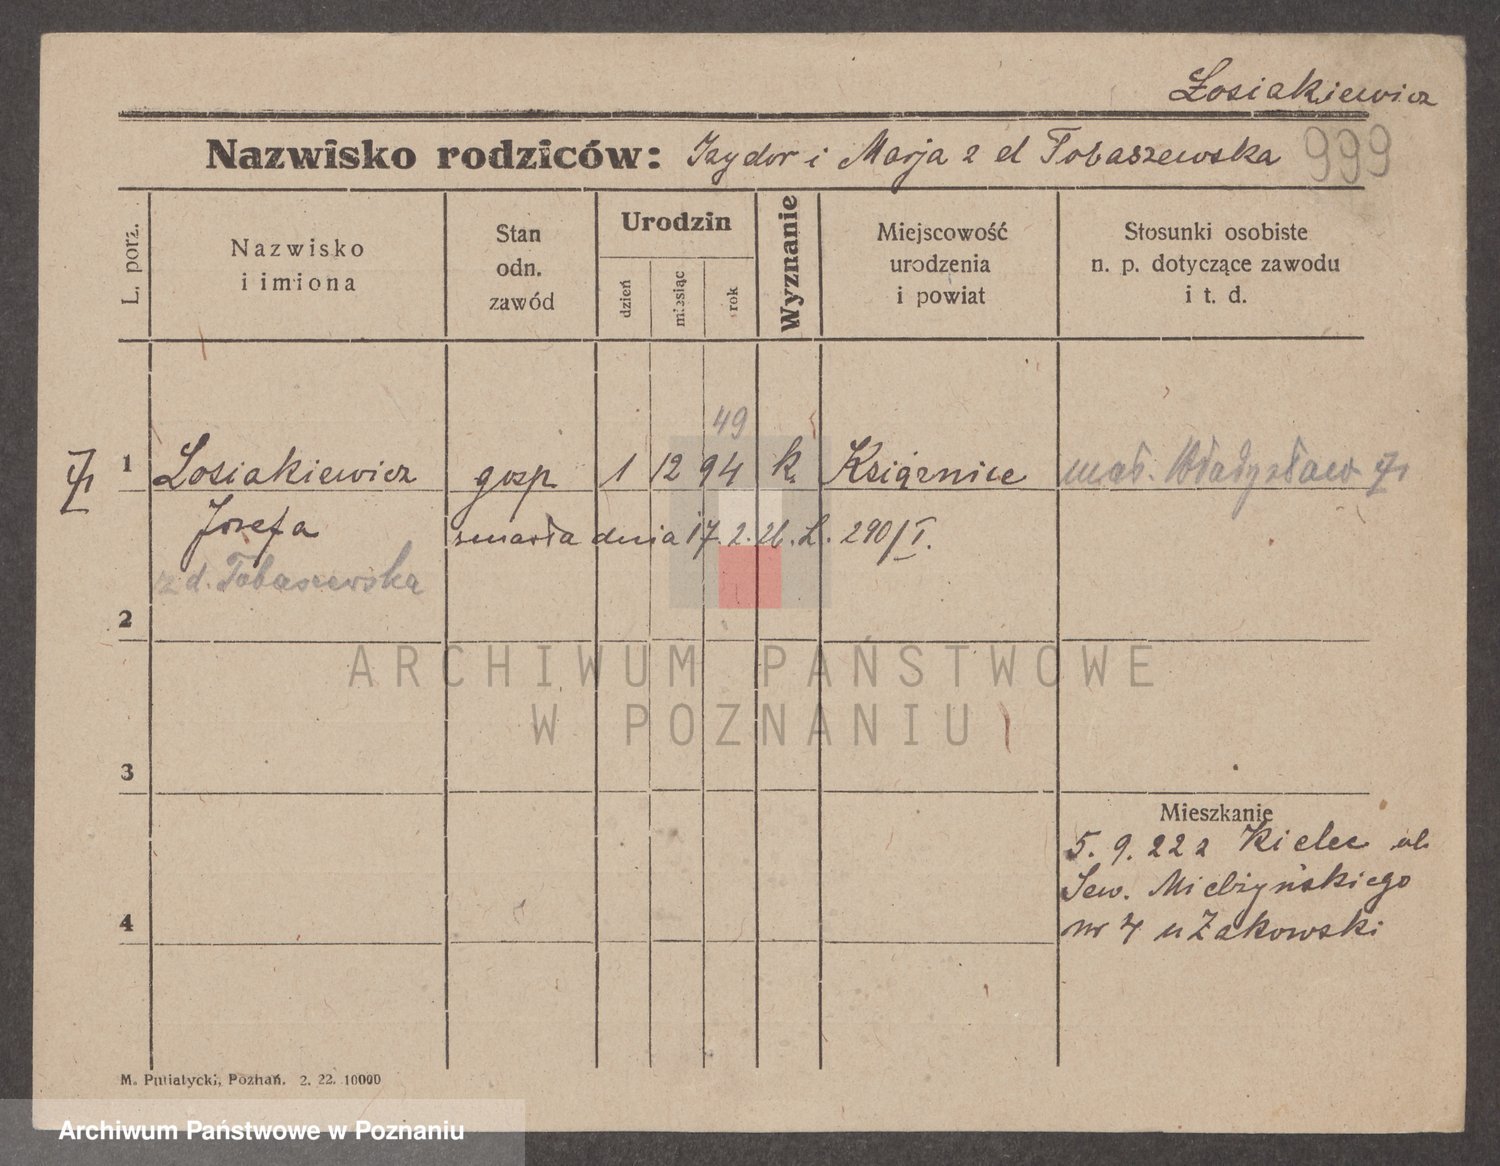 Łosiakiewicz
Nazwisko rodziców: Izydor i Marja z d Tobaszewska 999
L. porz.
Nazwisko
i imiona
Stan
odn.
zawód
Urodzin
dzień
miesiąc
rok
Wyznanie
Miejscowość
urodzenia
i powiat
Stosunki osobiste
n. p. dotyczące zawodu
i t. d.
49
1 Łosiakiewicz gosp. 1 12 94 k. Książnice mał. Władysław
Józefa zmarła dnia 17. 2. 26. L. 290/I.
z d. Tobaszewska
2
ARCHIWUM PAŃSTWOWE
W POZNANIU
3
Mieszkanie
5. 9. 22 z Kielec ul.
Sew. Mielżyńskiego
4
nr 4 u Żakowski
M. Putiatycki, Poznań. 2. 22. 10000
Archiwum Państwowe w Poznaniu